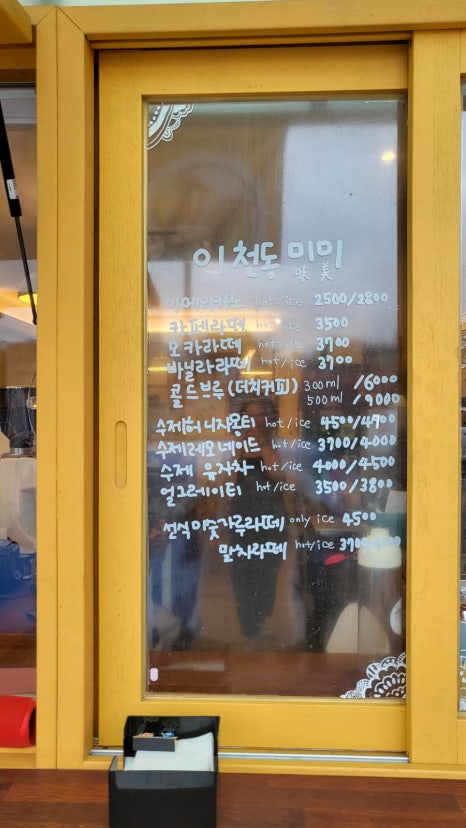 이천동 미미
味美
아메리카노 hot/ice 2500/2800
카페라떼 hot/ice 3500
모카라떼 hot/ice 3700
바닐라라떼 hot/ice 3700
콜드브루(더치커피) 300ml /6000
500ml /9000
수제허니자몽티 hot/ice 4500/4700
수제레모네이드 hot/ice 3700/4000
수제 유자차 hot/ice 4000/4500
얼그레이티 hot/ice 3500/3800
선식미숫가루라떼 only ice 4500
말차라떼 hot/ice